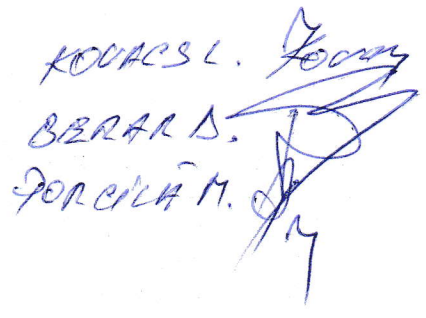 KOVACS L.
BERAR D.
PORCILĂ M.